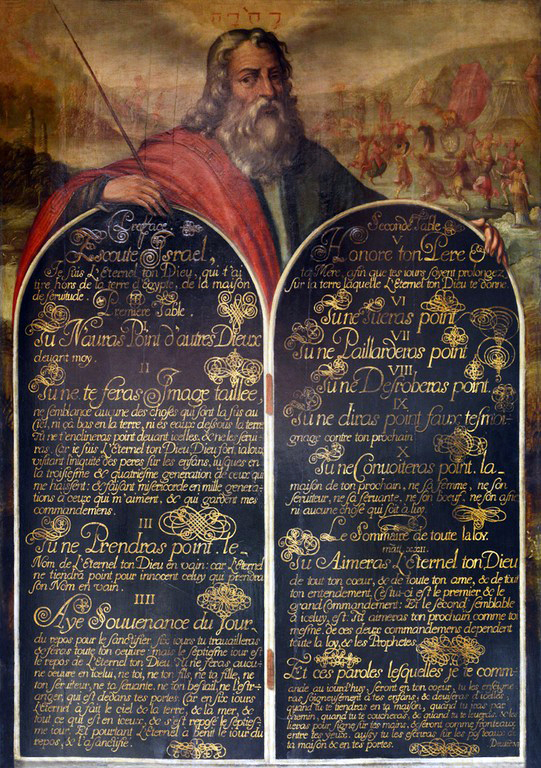 Preface.
Escoute Israel,
Je suis L'Eternel ton Dieu, qui t'ai
tire hors de la terre d'egypte, de la maison
de servitude.
Premiere Table.
I
Tu N'auras Point d'autres Dieux
devant moy.
II
Tu ne te feras Image taillee,
ne semblance aucune des choses qui sont la sus au
ciel, ni ça bas en la terre, ni es eaux dessous la terre
Tu ne t'enclineras point devant icelles, & ne les servi-
ras. Car je suis L'Eternel ton Dieu, Dieu fort, jaloux,
visitant l'iniquite des peres sur les enfans, jusques en
la troisiesme & quatriesme generation de ceux qui
me haïssent: & faisant misericorde en mille genera-
tions a ceux qui m'aiment, & qui gardent mes
commandemens.
III
Tu ne Prendras point le
Nom de L'Eternel ton Dieu en vain: car L'Eternel
ne tiendra point pour innocent celuy qui prendra
son Nom en vain.
IIII
Aye Souvenance du Jour
du repos pour le sanctifier six jours tu travailleras
& feras toute ton oeuvre: mais le septiesme jour est
le repos de L'Eternel ton Dieu. Tu ne feras aucu-
ne oeuvre en icelui, ne toi, ne ton fils, ne ta fille, ne
ton serviteur, ne ta servante, ne ton bestail, ne l'estr-
anger qui est dedans tes portes. Car en six jours
L'Eternel a fait le ciel & la terre, & la mer, &
tout ce qui est en iceux, & s'est reposé le septies-
me jour. Et pourtant L'Eternel a benit le jour du
repos, & l'a sanctifie.
Seconde Table.
V
Honore ton Pere &
ta Mere, afin que tes jours soyent prolongez
sur la terre laquelle L'Eternel ton Dieu te donne.
VI
Tu ne tueras point
VII
Tu ne Paillarderas point
VIII
Tu ne Desroberas point.
IX
Tu ne diras point faux tesmoi-
gnage contre ton prochain
X
Tu ne Convoiteras point la
maison de ton prochain, ne sa femme, ne son
serviteur, ne sa servante, ne son boeuf, ne son asne
ni aucune chose qui soit à luy.
Le Sommaire de toute la loy.
mat. xxii.
Tu Aimeras L'Eternel ton Dieu
de tout ton coeur, & de toute ton ame, & de tout
ton entendement. Cestui-ci est le premier & le
grand Commandement: Et le second semblable
a iceluy, est: Tu aimeras ton prochain comme toi
mesme. de ces deux commandemens dependent
toute la loy, & les Prophetes.
Et ces paroles lesquelles je te comm-
ande aujourd'huy, seront en ton coeur, tu les enseigne
ras soigneusement a tes enfans, & deviseras d'icelles,
quand tu te tiendras en ta maison, quand tu iras par
chemin, quand tu te coucheras, & quand tu te leveras. & les
lieras pour signe sur tes mains, & seront comme fronteaux
entre tes yeux. aussy tu les escriras sur les posteaux de
ta maison & en tes portes.